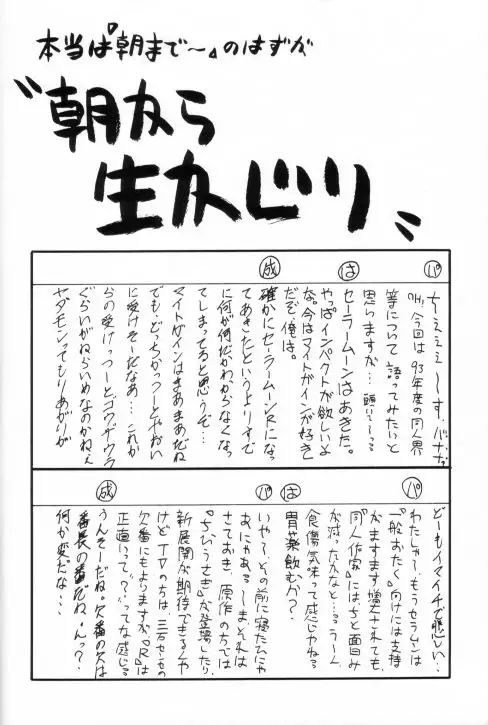 本当は『朝まで〜』のはずが
〝朝から
生かじり〟
パ
ちぇぇぇ〜す。バナナ
『H』今回は'93年度の同人界
等について語ってみたいと
思いますが…
は
セーラームーンはあきた。
やっぱインペクトが欲しいよ
な。今はマイトガインが好き
だぞ俺は。
成
確かにセーラームーンRになっ
てあきたというよりすで
に何が何だかわからなくなっ
てしまってると思うぞ…
マイトガインはまあまあだね
でも、どっちかっつーとやおい
に受けそーだなあ…これか
らの受けっつーとゴウザウラ
ぐらいがねらいめなのかねぇ
ヤダモンでもりあがりが
どーもイマイチで悲しい…
パ
わたしゃ〜、もうセラムンは
『一般おたく』向けには支持
がますます増えされても、
『同人作家』にはちと面白み
が減ったかなと…う〜ん
食傷気味って感じやねる
は
胃薬飲むか?
パ
いや〜、その前に寝たひにゃ
あ、にゃある〜しまそれは
さておき、原作の方では
『ちびうさぎ』が登場したり、
新展開が期待できるんや
けど、TVのちは、三万セーセの
欠番にもよりますが『R』は
正直いって?ってな感じる
成
うんそーだね。欠番の欠は
番長の番だね。んっ??
何か変だな…